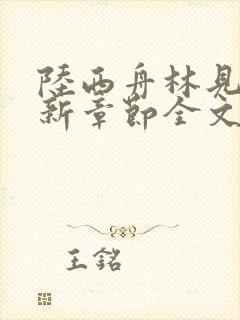 陸西舟林見
新章節全文
王銘